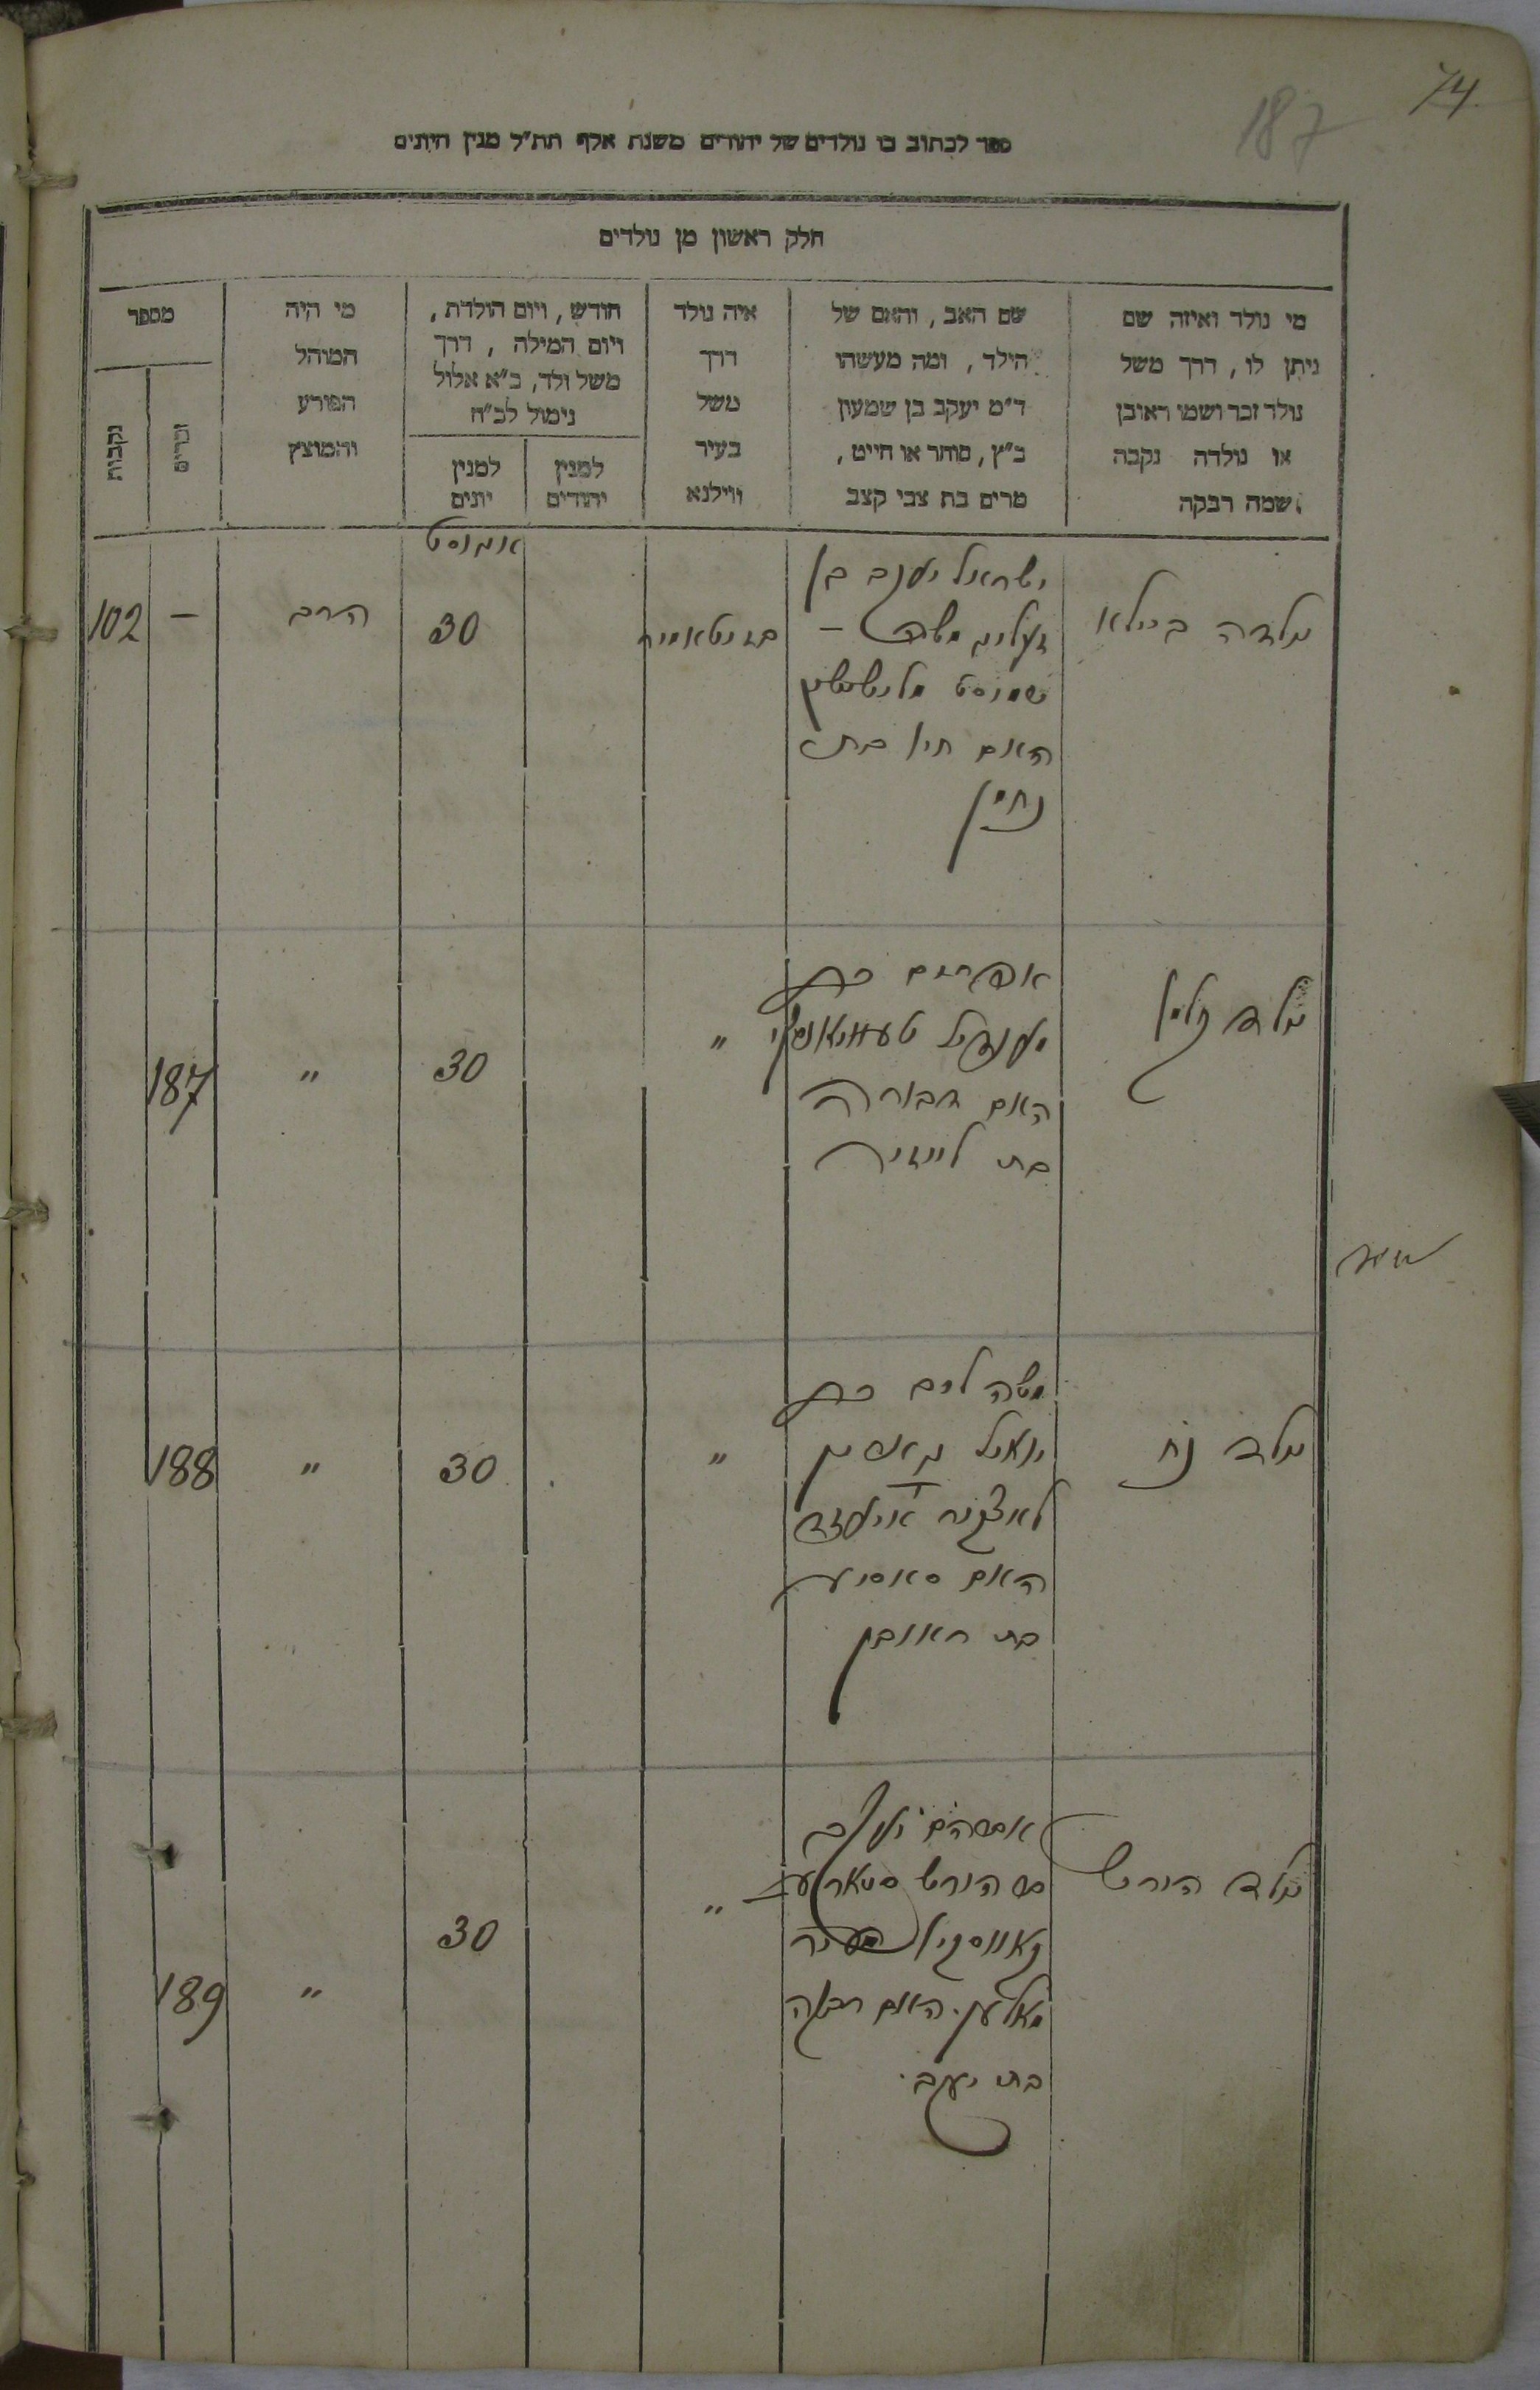 74
187
ספר לכתוב בו נולדים של יהודים משנת אלף תת״ל מנין היונים
חלק ראשון מן נולדים
מי נולד ואיזה שם
ניתן לו, דרך משל
נולד זכר ושמו ראובן
או נולדה נקבה
שמה רבקה
שם האב, והאם של
הילד, ומה מעשהו
ד״מ יעקב בן שמעון
כ״ץ, סוחר או חייט,
מרים בת צבי קצב
איה נולד
דרך
משל
בעיר
ווילנא
חודש, ויום הולדת,
ויום המילה, דרך
משל ולד, כ״א אלול
נימול לכ״ח
למנין
יהודים
למנין
יונים
מי היה
המוהל
הפורע
והמוצץ
מספר
זכרים
נקבות
אוגוסט
נולדה ביילא
ישראל יעקב בן
האם חי׳ בת
נחמן
30
הרב
–
102
נולד
אפרים בן
מענדיל
האם דבורה
בת לייזיר
"
30
"
187
נולד נח
משה ליב בן
יואל
האם סאסיע
בת ראובן
"
30
"
188
נולד הירש
אברהם יעקב
בן הירש
האם רבקה
בת יעקב.
"
30
"
189